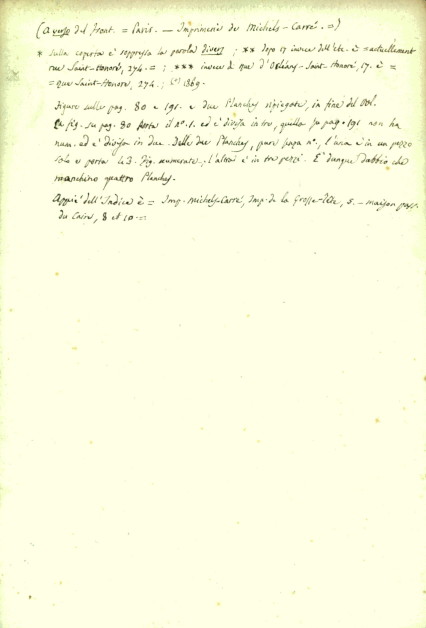 (a verso del front. = Paris. — Imprimerie de Michels-Carré. =)
* Sulla coperta è soppressa la parola divers ; ** dopo 17 invece dell'etc. è = actuellement
rue Saint-Honoré, 274. = ; *** invece di rue d'Orléans-Saint-Honoré, 17. è =
= rue Saint-Honoré, 274. ; (*) 1869.
Figure sulle pag. 80 e 191. e due Planches ripiegate, in fine del Vol.
La fig. su pag. 80 porta il n.° 1. ed è divisa in tre, quella su pag. 191 non ha
num. ed è divisa in due. Delle due Planches, pure senza n.°, l'una è in un pezzo
solo e porta 3. fig. numerate; l'altra è in tre pezzi. E' dunque dubbio che
manchino quattro Planches.
Appiè dell'Indice è = Imp. Michels-Carré, Imp. de la Grosse-Tête, 5. — maison pass.
du Caire, 8 et 10. =